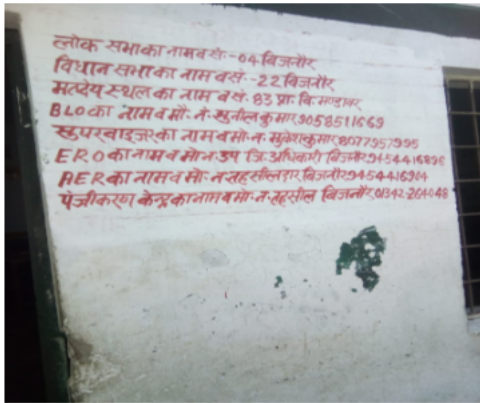 लोक सभा का नाम व सं:-04 बिजनौर
विधान सभा का नाम व सं:-22 बिजनौर
मतदेय स्थल का नाम व सं. 83 प्रा. वि. मण्डावर
BLO का नाम व मौ. नं. सुनील कुमार 9058511669
सुपरवाइजर का नाम व मो. न. मुकेश कुमार 8077957995
ERO का नाम व मो न. उप जि. अधिकारी बिजनौर 9454416896
AER का नाम व मो. न. तहसीलदार बिजनौर 9454416904
पंजीकरण केन्द्र का नाम व मो. न. तहसील बिजनौर 01342-264048